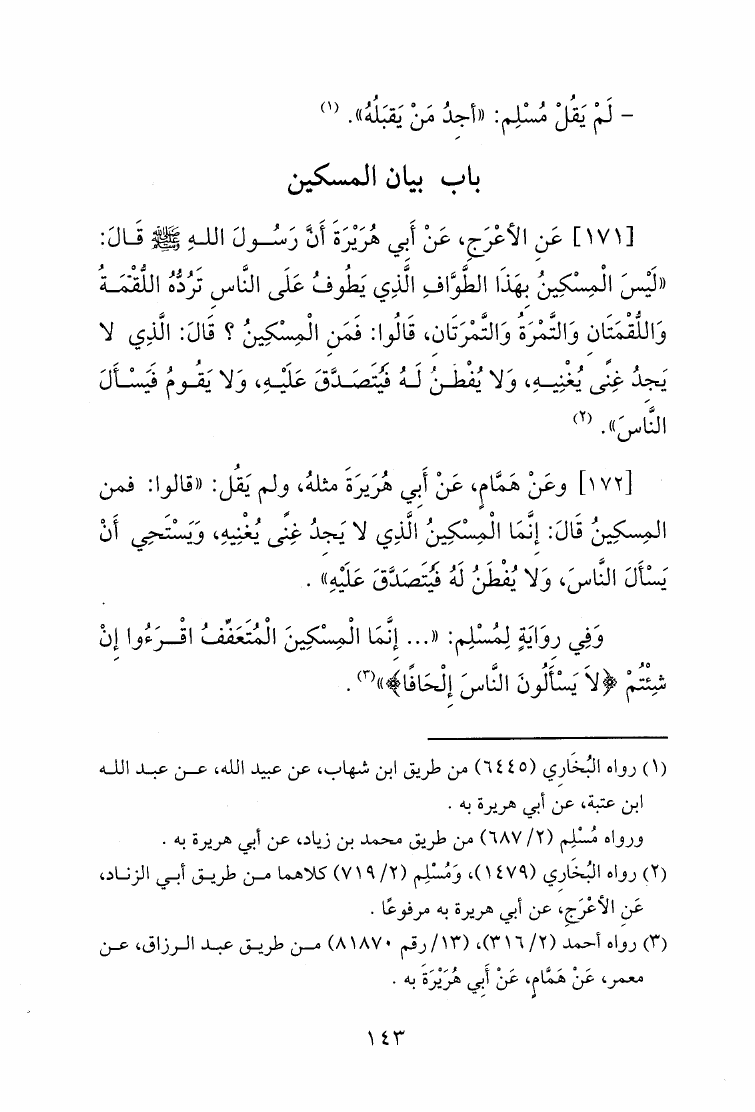 – لَمْ يَقُلْ مُسْلِم: «أجِدُ مَنْ يَقبَلُهُ». (١)
باب بيان المسكين
[١٧١] عَنِ الأعْرَجِ، عَنْ أبِي هُرَيْرَةَ أنَّ رَسُولَ اللهِ ﷺ قَالَ:
«لَيْسَ الْمِسْكِينُ بِهَذَا الطَّوَّافِ الَّذِي يَطُوفُ عَلَى النَّاسِ تَرُدُّهُ اللُّقْمَةُ
وَاللُّقمَتَانِ وَالتَّمْرَةُ وَالتَّمْرَتَانِ، قَالُوا: فَمَنِ الْمِسْكِينُ ؟ قَالَ: الَّذِي لا
يَجِدُ غِنًى يُغْنِيهِ، وَلا يُفْطَنُ لَهُ فَيُتَصَدَّقَ عَلَيْهِ، وَلا يَقُومُ فَيَسْألَ
النَّاسَ». (٢)
[١٧٢] وعَنْ هَمَّامٍ، عَنْ أَبِي هُرَيْرَةَ مثلهُ، ولم يَقُل: «قالوا: فمن
المِسكِينُ قَالَ: إِنَّمَا الْمِسْكِينُ الَّذِي لا يَجِدُ غِنًى يُغْنِيهِ، وَيَسْتَحِي أَنْ
يَسْأَلَ النَّاسَ، وَلا يُفْطَنُ لَهُ فَيُتَصَدَّقَ عَلَيْهِ» .
وَفِي رِوَايَةٍ لِمُسْلِمٍ: «... إنَّمَا الْمِسْكِينَ الْمُتَعَفِّفُ اقْرَءُوا إنْ
شِئْتُمْ ﴿لاَ يَسْألُونَ النَّاسَ إلْحَافًا﴾»(٣) .
(١) رواه البُخَارِي (٦٤٤٥) من طريق ابن شهاب، عن عبيد الله، عن عبد الله
ابن عتبة، عن أبي هريرة به .
ورواه مُسْلِم (٢/ ٦٨٧) من طريق محمد بن زياد، عن أبي هريرة به .
(٢) رواه البُخَارِي (١٤٧٩)، وَمُسْلِم (٢/ ٧١٩) كلاهما من طريق أبي الزناد،
عَنِ الأعْرَجِ، عن أبي هريرة به مرفوعًا .
(٣) رواه أحمد (٢/ ٣١٦)، (١٣/ رقم ٨١٨٧٠) من طريق عبد الرزاق، عن
معمر، عَنْ هَمَّامٍ، عَنْ أَبِي هُرَيْرَةَ به .
١٤٣